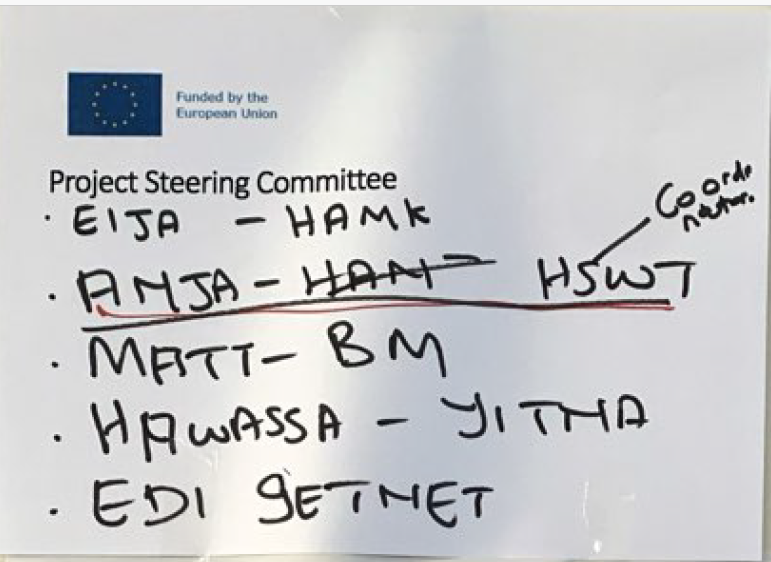 Funded by the
European Union
Project Steering Committee
· EIJA - HAMK
· ANJA - HAN HSWT
Coorde
nator.
· MATT - BM
· HAWASSA - YITNA
· EDI GETNET